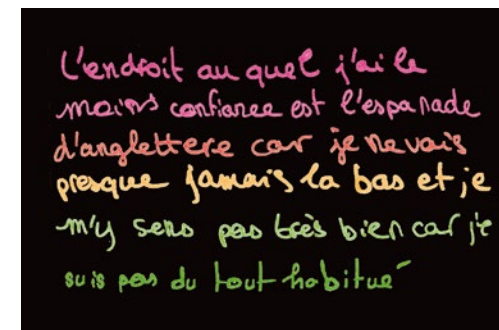 L'endroit au quel j'ai le
moins confiance est l'espanade
d'anglettere car je ne vais
presque jamais la bas et je
m'y sens pas très bien car je
suis pas du tout habitué